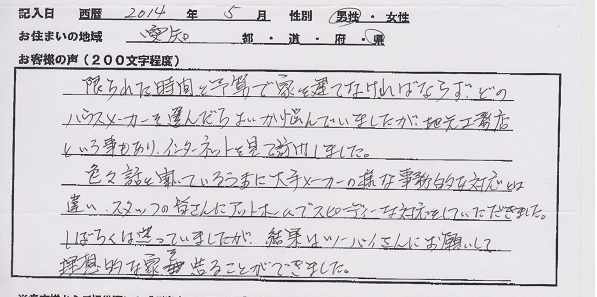 記入日 西暦 2014 年 5 月 性別 男性・女性
お住まいの地域 愛知 都・道・府・県
お客様の声(200文字程度)
限られた時間と予算で家を建てなければならず、どの
ハウスメーカーを選んだらよいか悩んでいましたが、地元工務店
という事もあり、インターネットを見て訪問しました。
色々話を聞いているうちに大手メーカーの様な事務的な対応とは
違い、スタッフの皆さんにアットホームでスピーディーな対応をしていただきました。
しばらくは迷っていましたが、結果はツーバイさんにお願いして
理想的な家造ることができました。